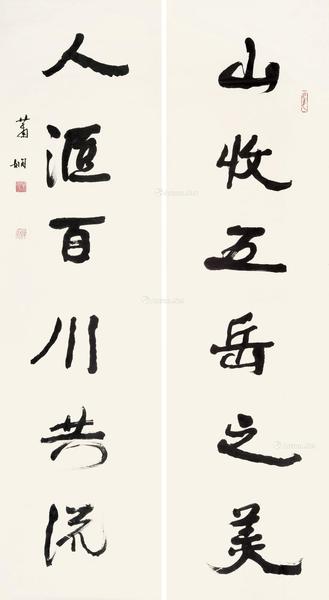 山收五岳之美
人汇百川共流
萧娴